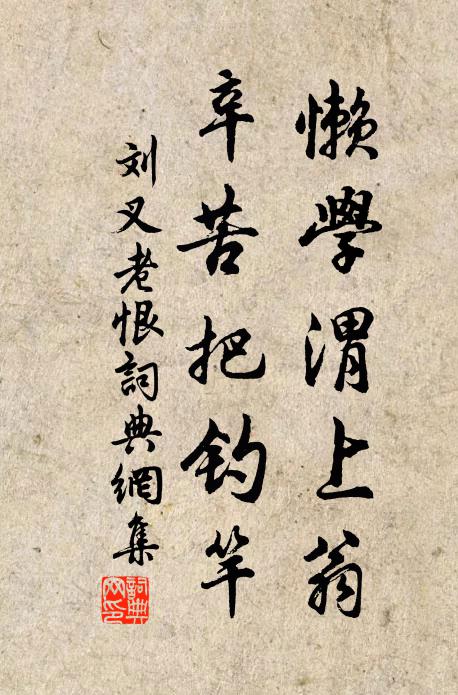 懶學渭上翁
辛苦把釣竿
刘叉老恨詞典網集
詞典網印